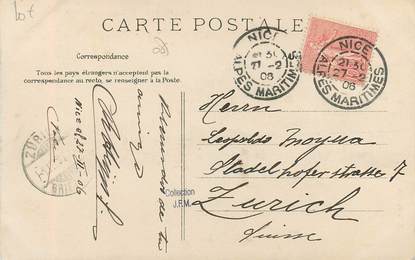 CARTE POSTALE
Correspondance
Tous les pays étrangers n'acceptent pas la
correspondance au recto, se renseigner à la Poste.
NICE
21 30
27-2
06
ALPES MARITIMES
NICE
21 30
27-2
06
ALPES MARITIMES
Herrn
Leopoldo
Stadelhoferstrasse 7
Zurich
Suisse
de tu
amigo
Nice 27 II 06
Collection
J.P.M.
ZÜR